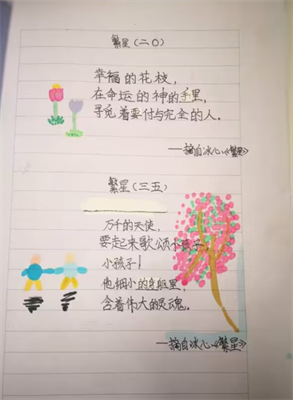 繁星（二〇）
幸福的花枝，
在命运的神的手里，
寻觅着要付与完全的人。
——摘自冰心《繁星》
繁星（三五）
万千的天使，
要起来歌颂小孩子；
小孩子！
他细小的身躯里，
含着伟大的灵魂。
——摘自冰心《繁星》